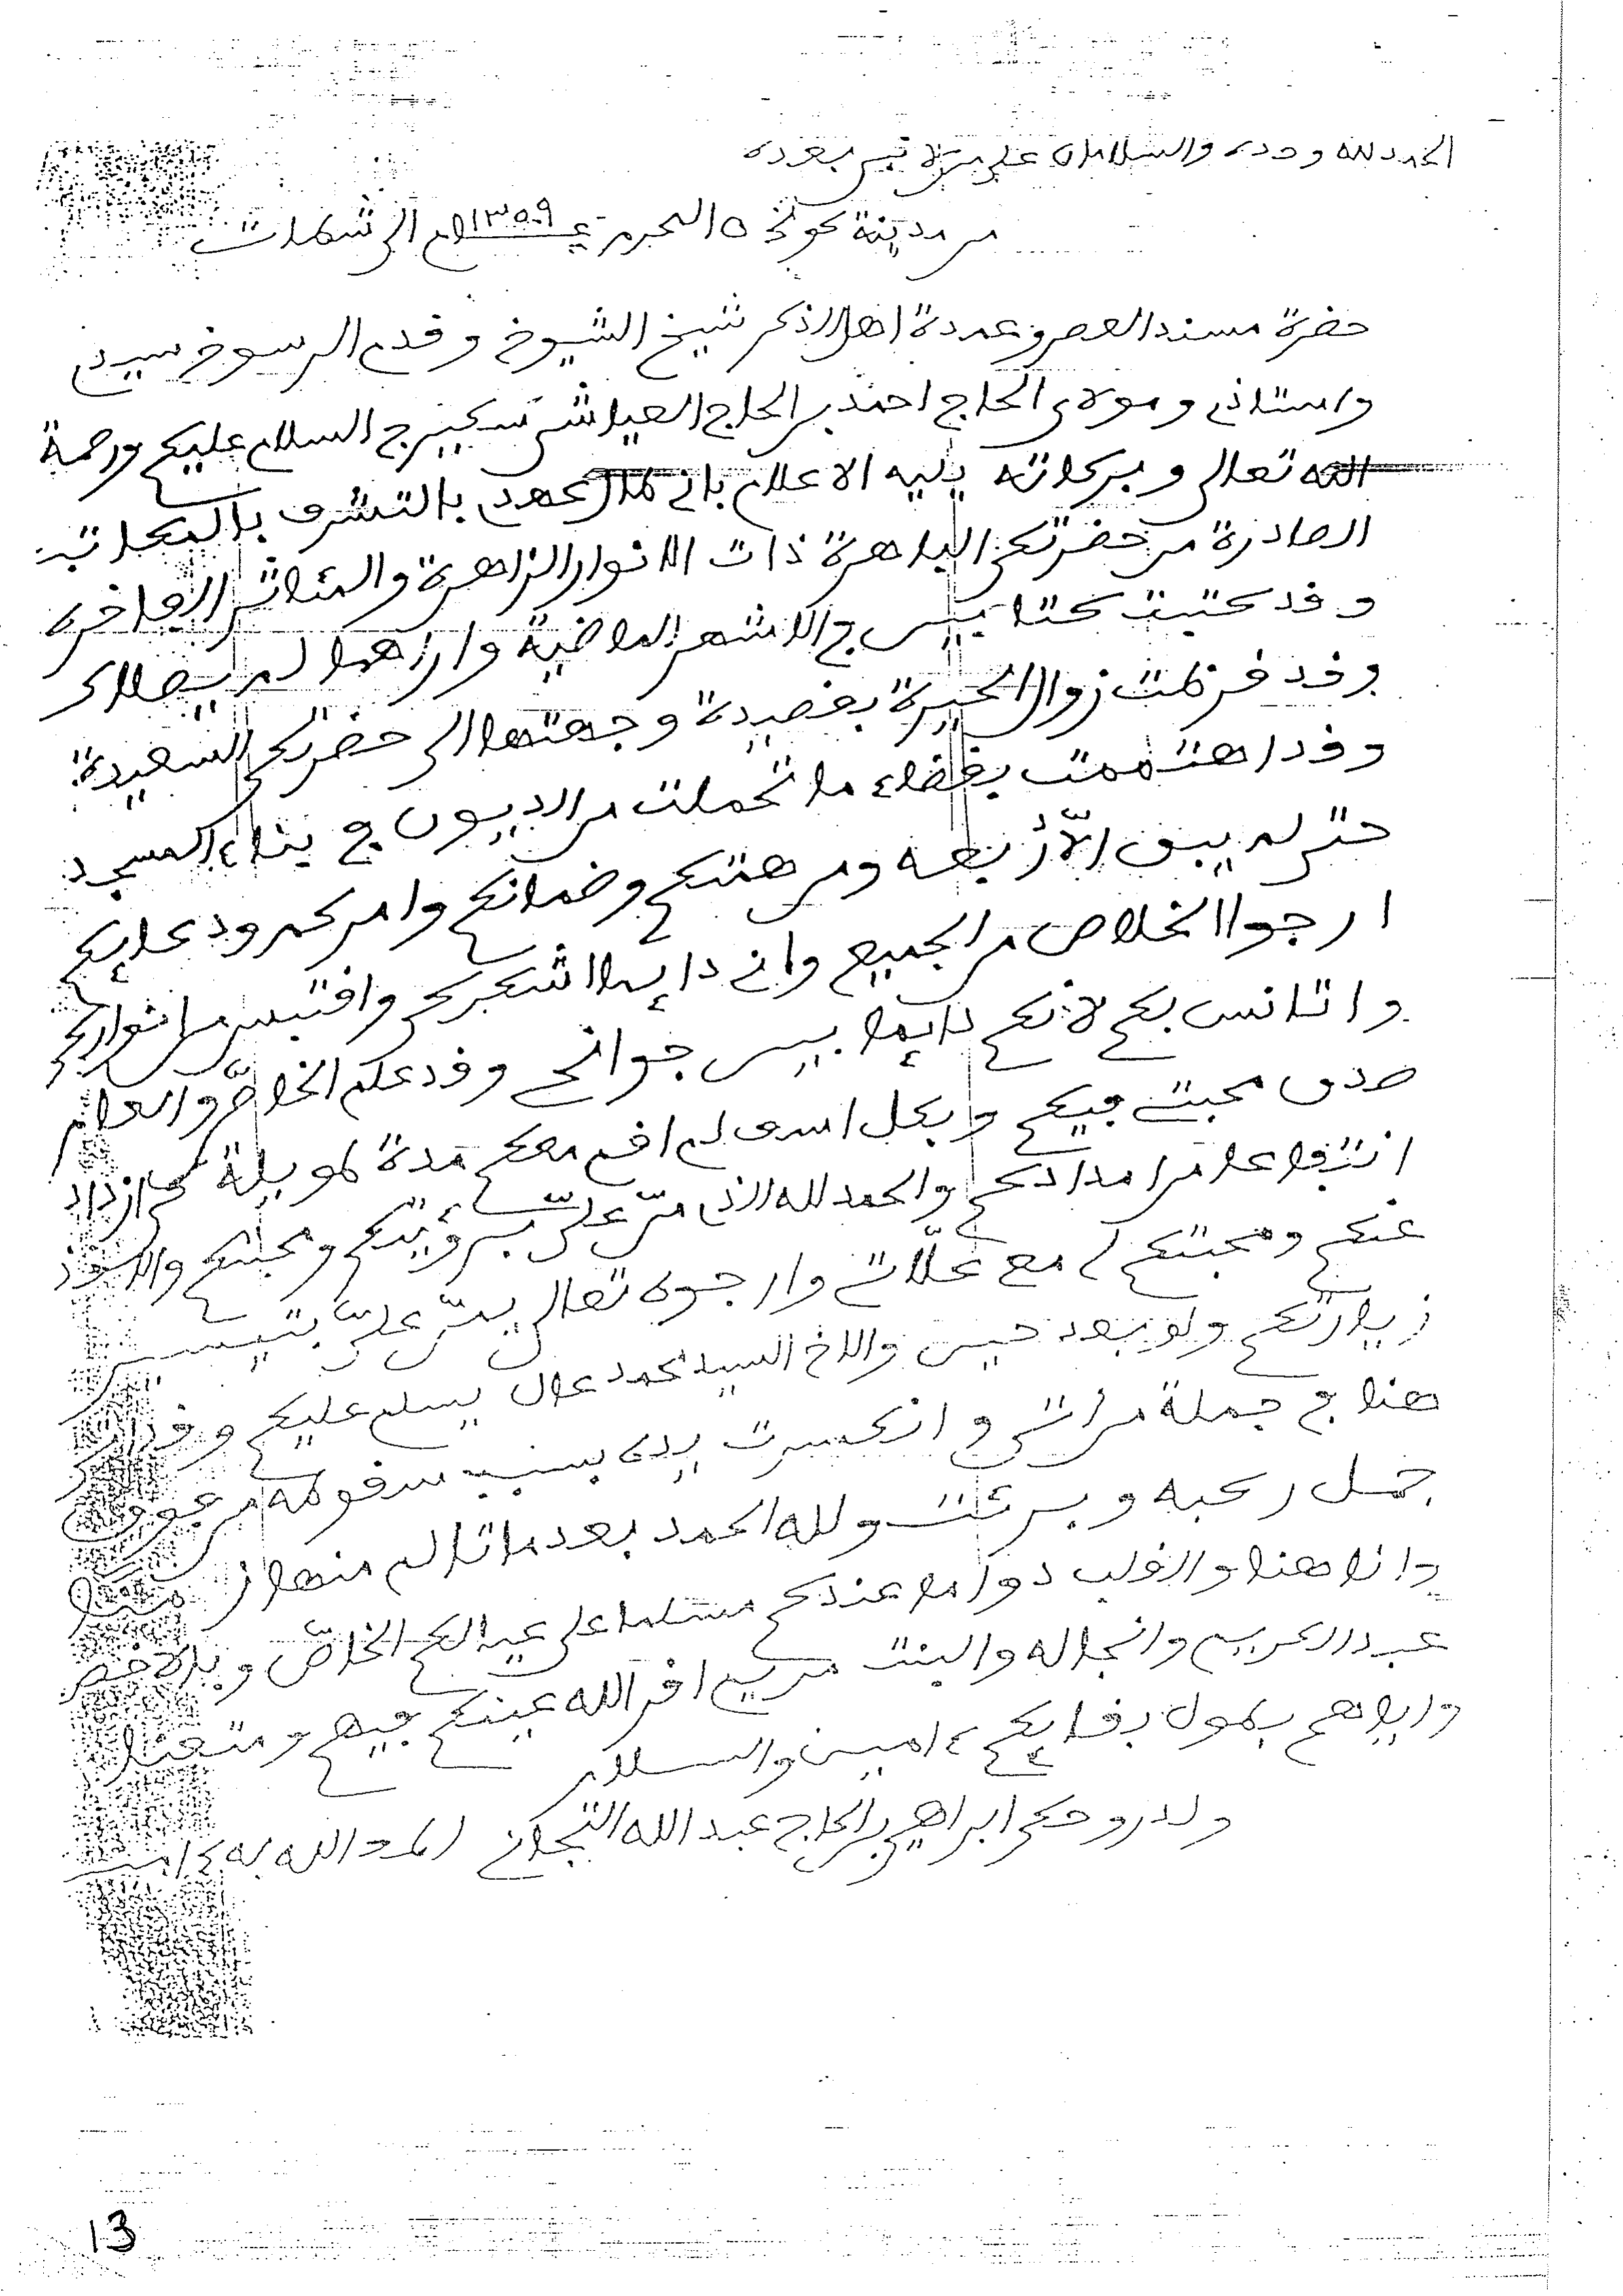 الحمد لله وحده والسلامان على من لا نبي بعده
من مدينة كولخ ٥ المحرم عام ١٣٥٩ الى شطات
حضرة مسند العصر وعمدة اهل الذكر شيخ الشيوخ وقدم الرسوخ سيدي
واستاذي ومولاي الحاج احمد بن الحاج العياشي سكيرج السلام عليكم ورحمة
الله تعالى وبركاته يليه الاعلام باني طال عهدي بالتشرف بالمكاتب
الصادرة من حضرتكم الباهرة ذات الانوار الزاهرة والمئاثر الفاخرة
وقد كتبت كتابين في الاشهر الماضية واراهما لم يصلاكم
وقد قرظت زوال الحيرة بقصيدة وجهتها الى حضرتكم السعيدة
وقد اهتممت بقضاء ما تحملت من الديون في بناء المسجد
حتى لم يبق الّا ربعه ومن همتكم وضمانكم وامركم ودعائكم
ارجوا الخلاص من الجميع واني دائما اشكركم واقتبس من انواركم
واتانس بكم لانكم دائما بين جوانحي وقد علم الخاصّ والعام
صدق محبتي فيكم وبكل اسف لم اقم معكم مدة طويلة كي ازداد
انتفاعا من امدادكم والحمد لله الذي منّ عليّ برؤيتكم ومحبتكم والاخذ
عنكم ومحبتكم لي مع علّاتي وارجوه تعالى يمنّ عليّ بتيسير
زيارتكم ولو بعد حين والاخ السيد محمد عال يسلم عليكم وقد زارك
هنا في جملة مراتي وانكسرت يده بسبب سقوطه من فوق
جمل ركبه وبرئت ولله الحمد بعد ما تالم منها
وانا هنا والقلب دواما عندكم مسلما على عيالكم الخاصّ وبالاخص
عبد الكريم وانجاله والبنت مريم اقر الله عينكم فيهم ومتعنا
واياهم بطول بقائكم ءامين والسلام
ولد روحكم ابراهيم بن الحاج عبد الله التجاني لطف الله به ءامين
13